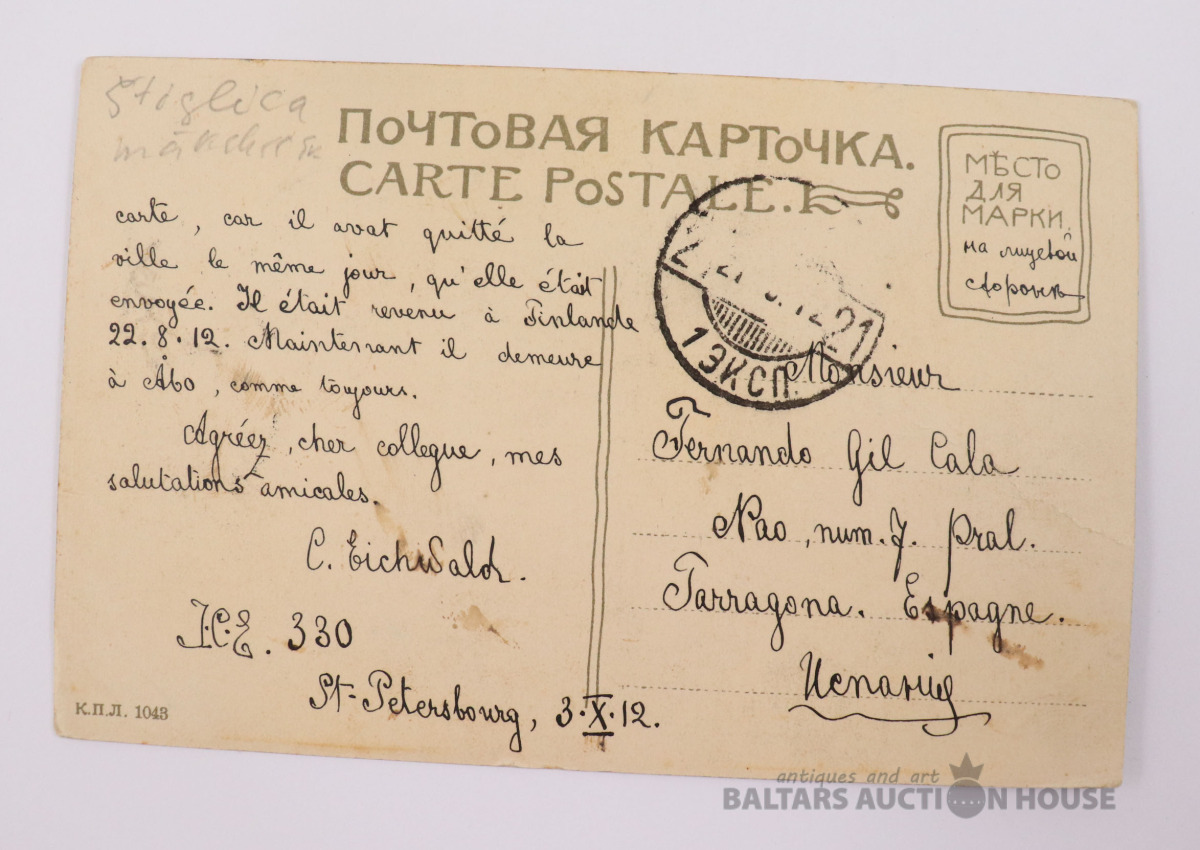 Štiglica
ПОЧТОВАЯ КАРТОЧКА.
CARTE POSTALE.
МѢСТО
ДЛЯ
МАРКИ.
на лицевой
сторонѣ
carte, car il avat quitté la
ville le même jour, qu'elle était
envoyée. Il était revenu à Finlande
22.8.12. Maintenant il demeure
à Åbo, comme toujours.
Agréez, cher collegue, mes
salutations amicales.
C. Eichwald.
J.C.E. 330
St-Petersbourg, 3.X.12.
К.П.Л. 1043
21
1 ЭКСП.
Monsieur
Fernando Gil Cala
Nao, num. 7. pral.
Tarragona. Espagne.
Испанія
antiques and art
BALTARS AUCTION HOUSE